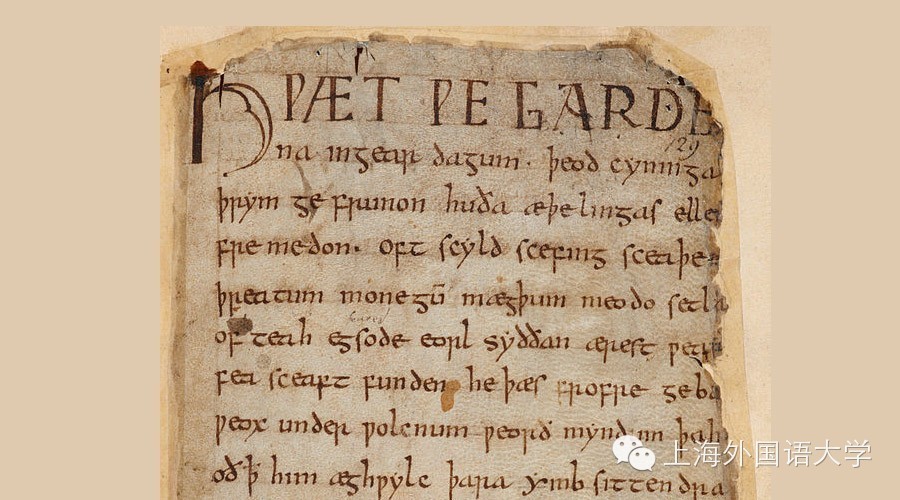 HǷÆT ǷE GARDE
129
na ingear dagum · þeod cyninga
þrym ge frunon huða æþelingas elle
fre medon · oft scyld scefing sceaþe
þreatum monegū mægþum meodo setla
of teah egsode eorl syððan ærest ƿear
fea sceaft funden he þæs frofre geba
ƿeox under ƿolcnum ƿeorð mynd um þah
oð ꝥ him æghƿylc þara ymb sittendra
上海外国语大学